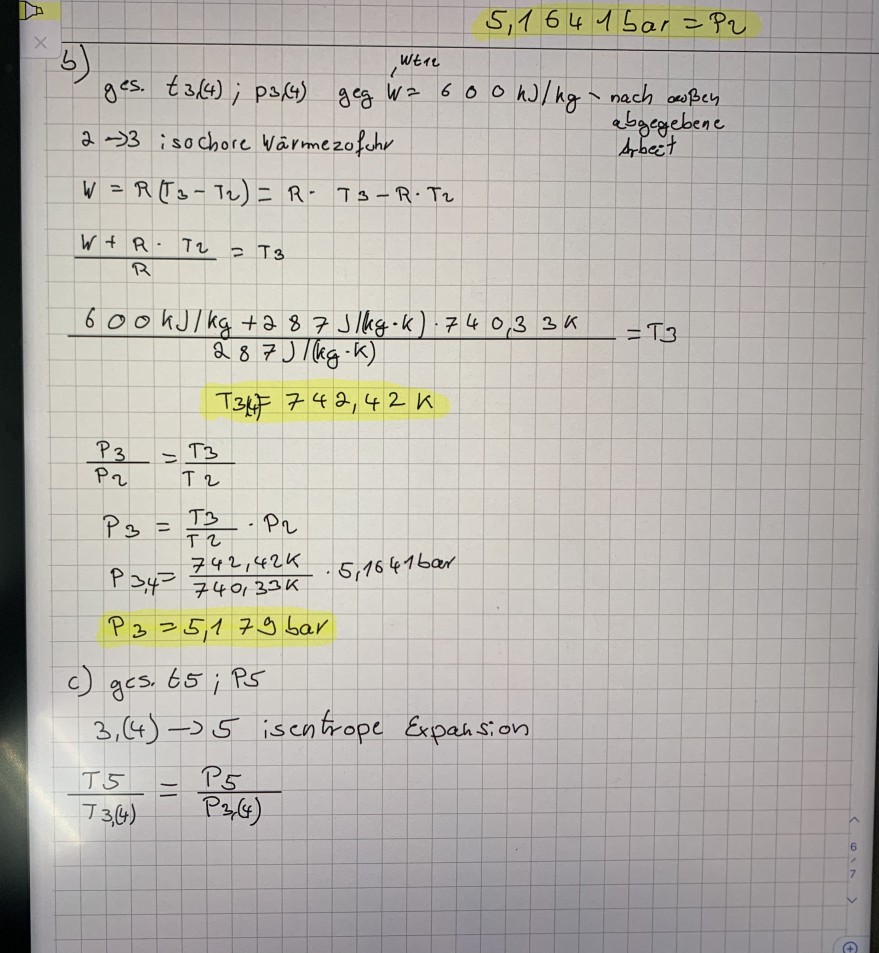 5,1641 bar = P2
b)
Wt12
ges. t3,(4) ; p3(4) geg W = 600 kJ/kg - nach außen
abgegebene
Arbeit
2 → 3 isochore Wärmezofuhr
W = R(T3 - T2) = R · T3 - R · T2
W + R · T2 / R = T3
600 kJ/kg + 287 J/(kg·k) · 740,33K / 287 J/(kg·K) = T3
T3(4) = 742,42 K
P3 / P2 = T3 / T2
P3 = T3 / T2 · P2
P3,4 = 742,42K / 740,33K · 5,1641 bar
P3 = 5,179 bar
c) ges. t5 ; P5
3,(4) → 5 isentrope Expansion
T5 / T3,(4) = P5 / P3,(4)
6
/
7